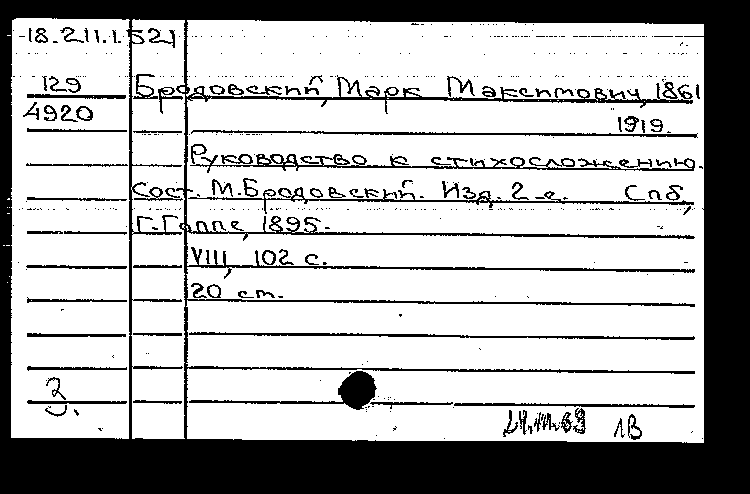 18.211.1.521
129 Бродовский, Марк Максимович, 1861
4920 1919.
Руководство к стихосложению.
Сост. М.Бродовский. Изд. 2-е. Спб,
Г.Гоппе, 1895.
VIII, 102 с.
20 см.
З.
24.11.69 1В